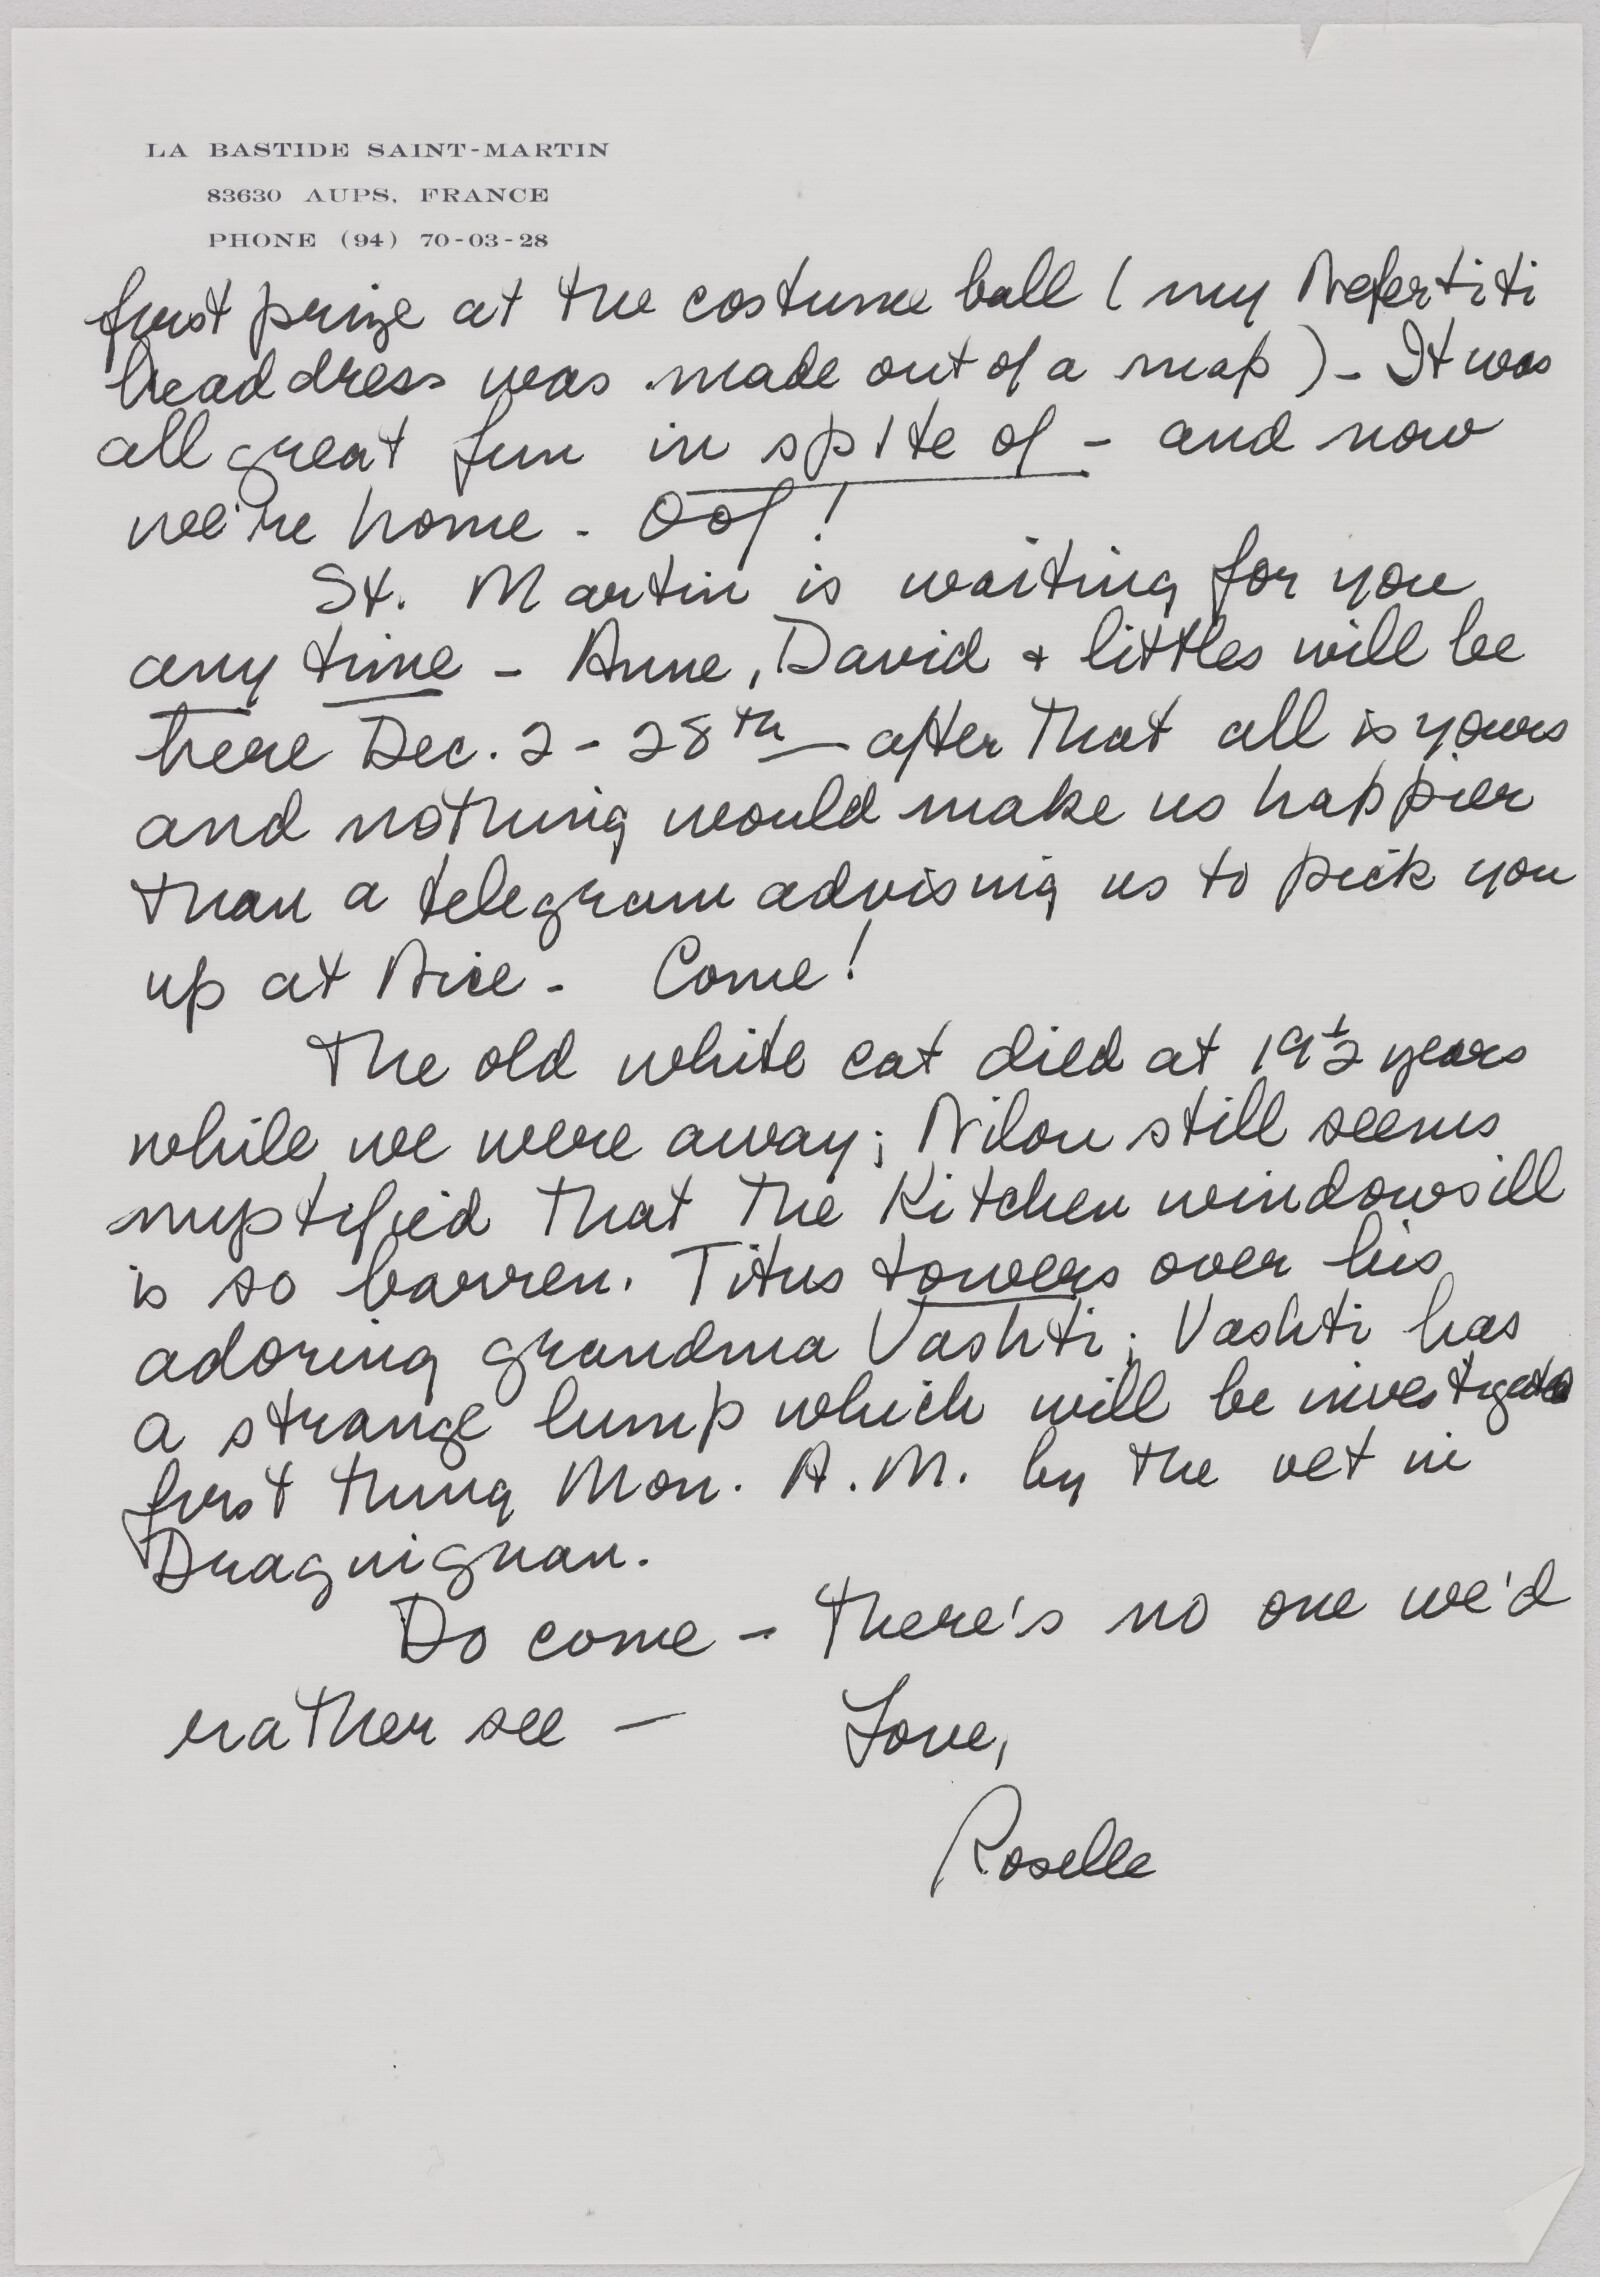 LA BASTIDE SAINT-MARTIN
83630 AUPS, FRANCE
PHONE (94) 70-03-28
first prize at the costume ball (my Nefertiti
headdress was made out of a map) - It was
all great fun in spite of - and now
we're home - Oof!
St. Martin is waiting for you
any time - Anne, David + littles will be
here Dec. 2 - 28th - after that all is yours
and nothing would make us happier
than a telegram advising us to pick you
up at Nice - Come!
The old white cat died at 19 1/2 years
while we were away; Nilou still seems
mystified that the kitchen windowsill
is so barren. Titus towers over his
adoring grandma Vashti; Vashti has
a strange lump which will be investigated
first thing Mon. A.M. by the vet in
Draguignan.
Do come - there's no one we'd
rather see - Love,
Roselle